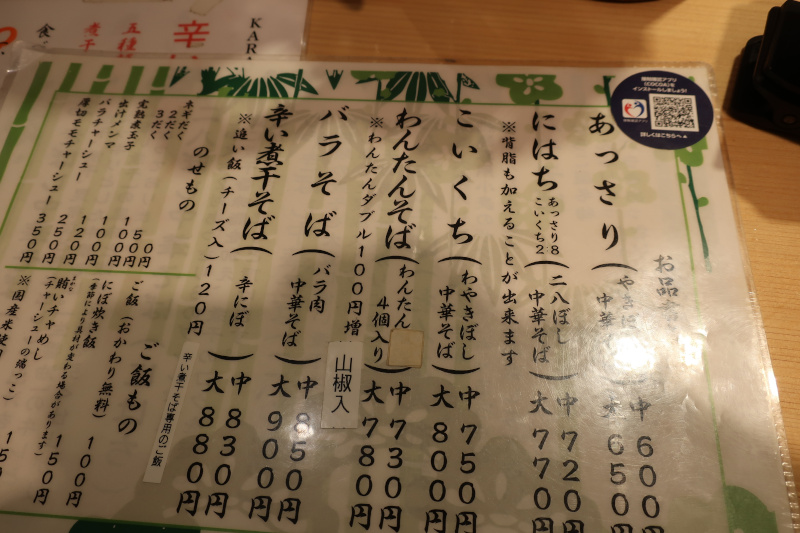 KARA
辛い
五種
煮干
食べ
接触確認アプリ
(COCOA)を
インストールしましょう!
詳しくはこちらへ
あっさり
(やきぼ
中華
中 600
大 650
にはち
あっさり8
こいくち2
(二八ぼし
中華そば)
中 720円
大 770円
※背脂も加えることが出来ます
こいくち
(わやきぼし
中華そば)
中 750円
大 800円
わんたんそば
(わんたん
4個入り)
中 730円
大 780円
※わんたんダブル100円増
山椒入
バラそば
(バラ肉
中華そば)
中 850円
大 900円
辛い煮干そば
(辛にぼ)
中 830円
大 880円
※追い飯(チーズ入)120円
辛い煮干そば専用のご飯
のせもの
ネギだく
2だく
3だく
完熟煮玉子
出汁メンマ
バラチャーシュー
厚切モモチャーシュー
50円
100円
150円
100円
120円
250円
350円
ご飯もの
ご飯(おかわり無料)
100円
にぼ炊き飯
(季節により具材が変わる場合があります)
150円
賄いチャめし
(チャーシューの端っこ)
※国産米使用